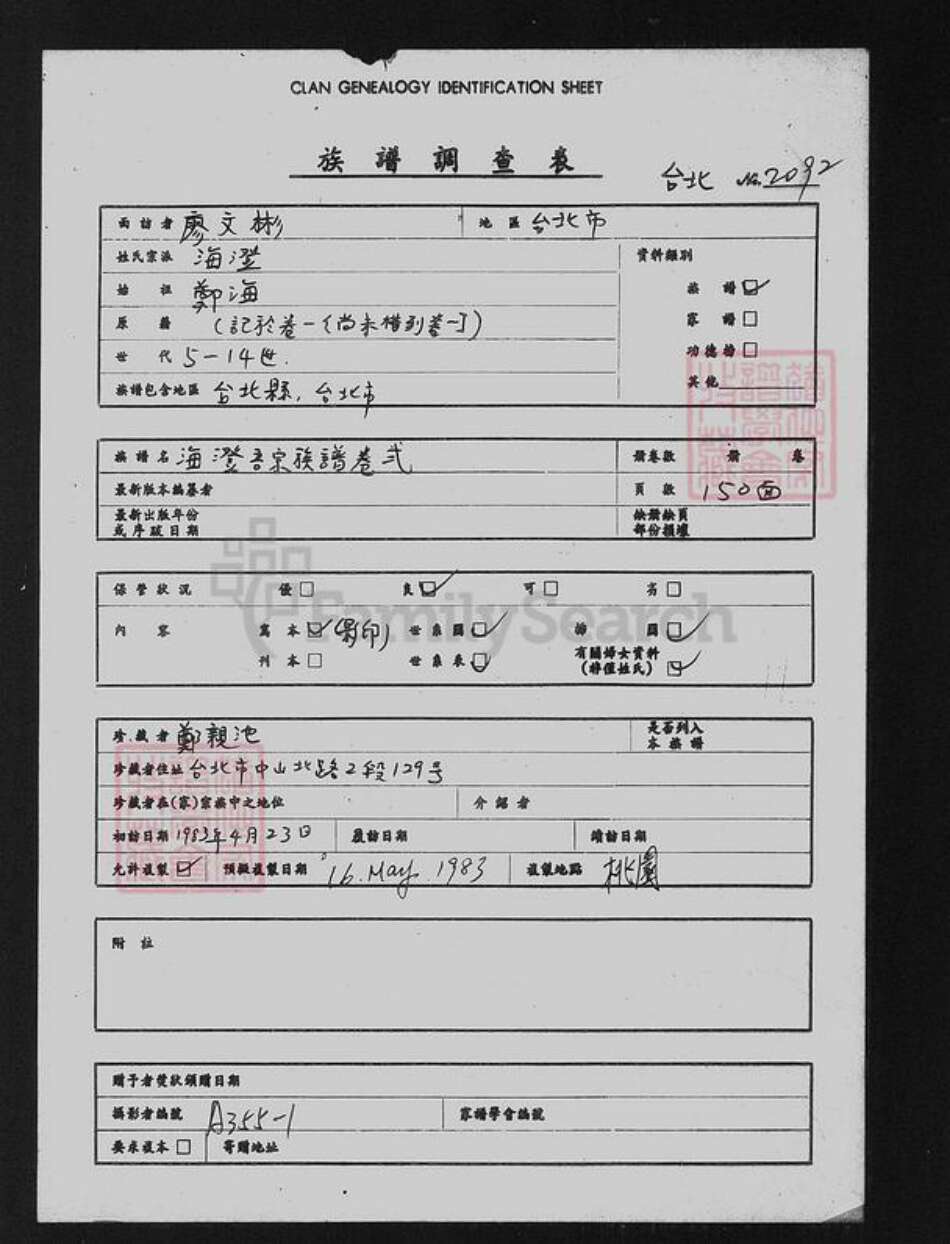 CLAN GENEALOGY IDENTIFICATION SHEET
族譜調查表
台北 No. 2092
面訪者 廖文彬 地區 台北市
姓氏宗派 海澄 資料類別
始祖 鄭海 族譜 ☑
原籍 (記於卷一(尚未借到卷一)) 家譜 □
世代 5-14世. 功德榜 □
族譜包含地區 台北縣, 台北市 其他
族譜名 海澄吾宗族譜卷弍 冊卷數 冊 卷
最新版本編纂者 頁數 150面
最新出版年份 缺冊缺頁
或序跋日期 部份損壞
保管狀況 優 □ 良 ☑ 可 □ 劣 □
內容 寫本 ☑ (影印) 世系圖 ☑ 插圖 ☑
刊本 □ 世系表 ☑ 有關婦女資料
(將僅姓氏) ☑
珍藏者 鄭親池 是否列入
本族譜
珍藏者住址 台北市中山北路2段129号
珍藏者在(家)宗族中之地位 介紹者
初訪日期 1983年4月23日 覆訪日期 續訪日期
允許複製 ☑ 預擬複製日期 16. May. 1983 複製地點 桃園
附註
贈予者獎狀頒贈日期
攝影者編號 A355-1 家譜學會編號
要求複本 □ 寄贈地址
FamilySearch